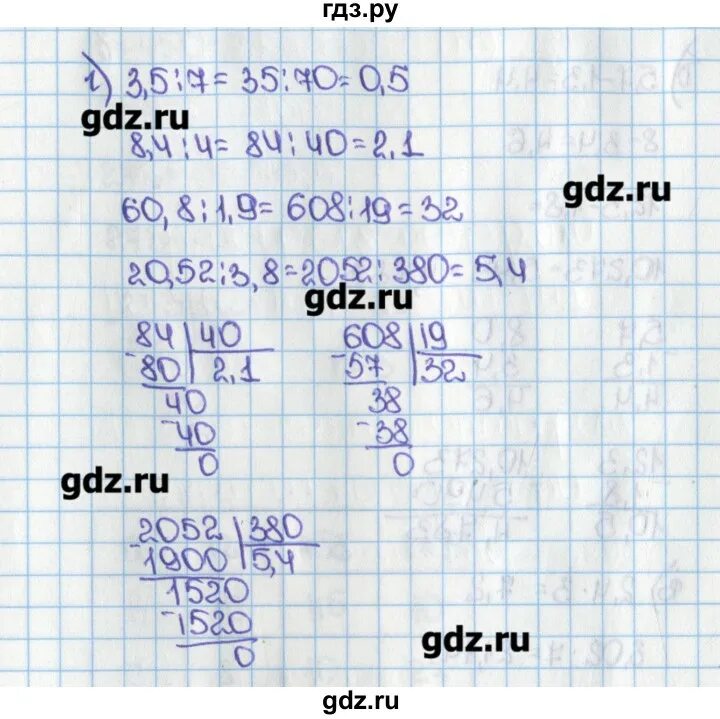 гдз.ру
г) 3,5:7= 35:70= 0,5
gdz.ru
8,4:4= 84:40=2,1
gdz.ru
60,8:1,9= 608:19=32
20,52:3,8=2052:380= 5,4
gdz.ru
84 40 608 19
-80 2,1 -57 32
40 38
-40 -38
0 0
gdz.ru
2052 380
-1900 5,4
1520
-1520
0
gdz.ru
gdz.ru